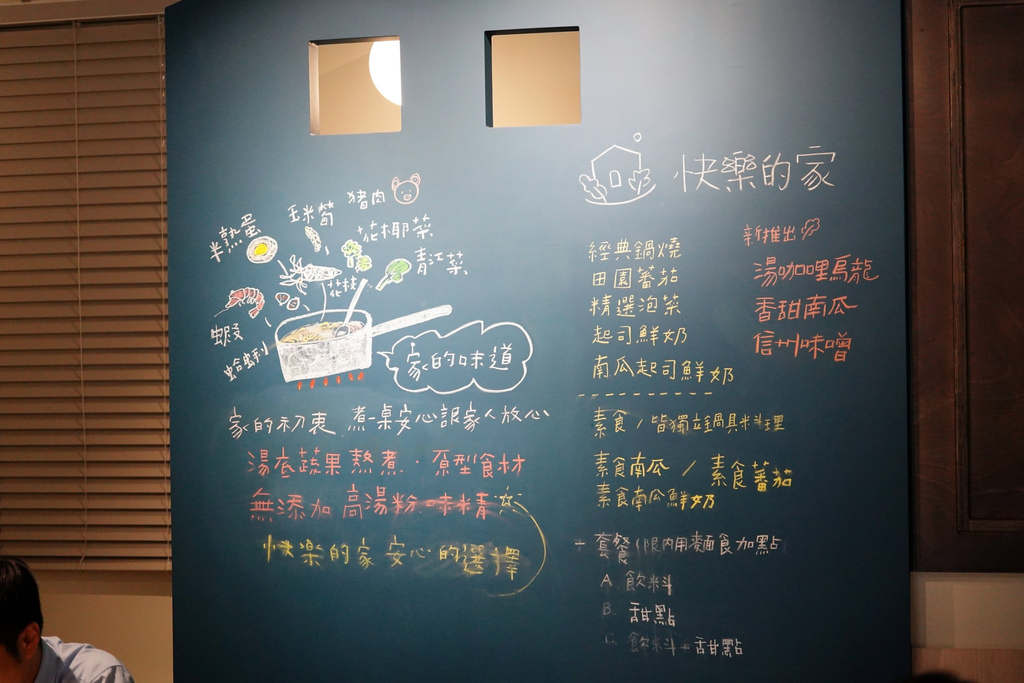 豬肉
玉米筍
半熟蛋
花椰菜
青江菜
花枝
蝦
蛤蜊
家的味道
家的初衷 煮一桌安心讓家人放心
湯底蔬果熬煮·原型食材
無添加高湯粉 味精
快樂的家 安心的選擇
快樂的家
經典鍋燒
田園蕃茄
精選泡菜
起司鮮奶
南瓜起司鮮奶
新推出
湯咖哩烏龍
香甜南瓜
信州味噌
素食/皆獨立鍋具料理
素食南瓜 / 素食蕃茄
素食南瓜鮮奶
+ 套餐(限內用麵食加點
A. 飲料
B. 甜點
C. 飲料+甜點